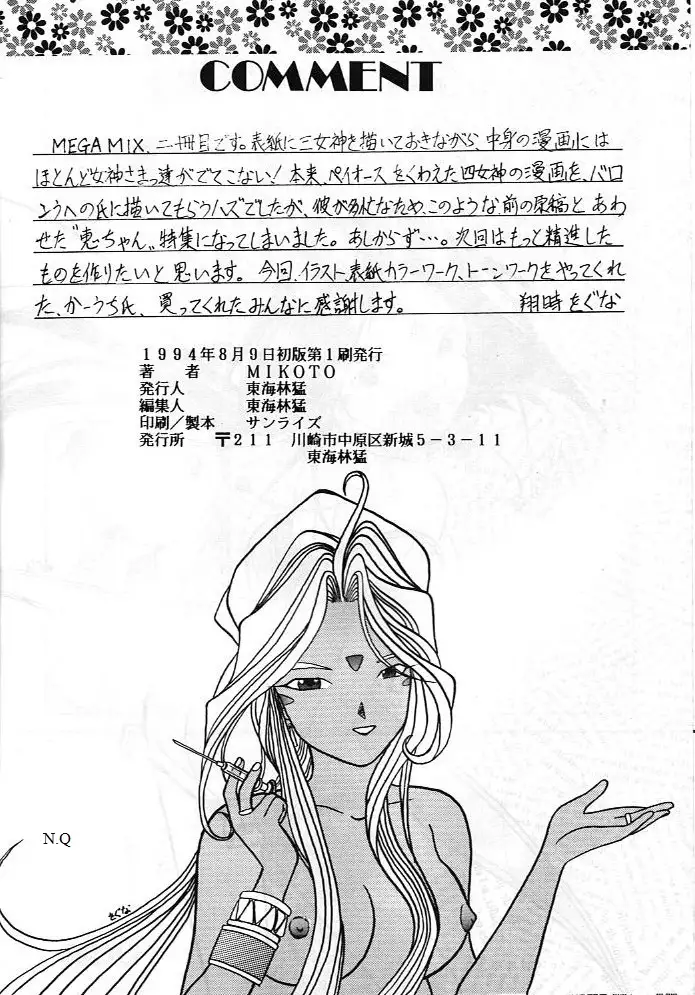 COMMENT
MEGA MIX、二冊目です。表紙に三女神を描いておきながら、中身の漫画には
ほとんど女神さまっ達がでてこない！本来、ペイオースをくわえた四女神の漫画を、バロ
ンうへの氏に描いてもらうハズでしたが、彼が多忙なためや、このような前の原稿とあわ
せた"恵ちゃん"特集になってしまいました。あしからず…。次回はもっと精進した
ものを作りたいと思います。今回、イラスト、表紙カラーワーク、トーンワークをやってくれ
た、かーうち氏、買ってくれたみんなに感謝します。 翔時をぐな
1994年8月9日初版第1刷発行
著 者 MIKOTO
発行人 東海林猛
編集人 東海林猛
印刷／製本 サンライズ
発行所 〒211 川崎市中原区新城5－3－11
東海林猛
N.Q
をぐな